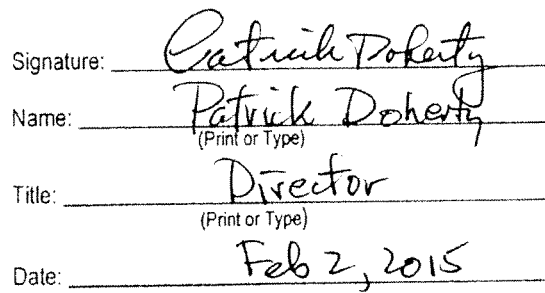 Signature: Patrick Doherty
Name: Patrick Doherty
(Print or Type)
Title: Director
(Print or Type)
Date: Feb 2, 2015